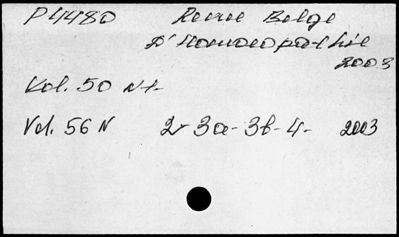 P4480 Revue Belge
D'Homoeopathie
2003
Vol. 50 N 1-
Vol. 56 N 2- 3a- 3b- 4- 2003